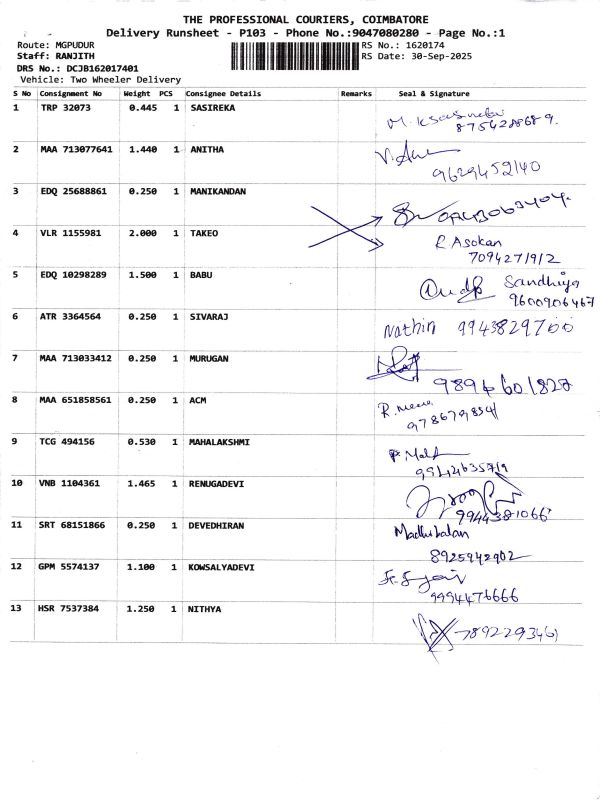 THE PROFESSIONAL COURIERS, COIMBATORE
Delivery Runsheet - P103 - Phone No.:9047080280 - Page No.:1
Route: MGPUDUR RS No.: 1620174
Staff: RANJITH RS Date: 30-Sep-2025
DRS No.: DCJB162017401
Vehicle: Two Wheeler Delivery
S No Consignment No Weight PCS Consignee Details Remarks Seal & Signature
1 TRP 32073 0.445 1 SASIREKA
2 MAA 713077641 1.440 1 ANITHA
9629452140
3 EDQ 25688861 0.250 1 MANIKANDAN
4 VLR 1155981 2.000 1 TAKEO
R Asokan
7094271912
5 EDQ 10298289 1.500 1 BABU
Sandhiya
9600906467
6 ATR 3364564 0.250 1 SIVARAJ
Nathin 9943829700
7 MAA 713033412 0.250 1 MURUGAN
9894601827
8 MAA 651858561 0.250 1 ACM
9 TCG 494156 0.530 1 MAHALAKSHMI
10 VNB 1104361 1.465 1 RENUGADEVI
9944381066
11 SRT 68151866 0.250 1 DEVEDHIRAN
Madhubalan
8925942902
12 GPM 5574137 1.100 1 KOWSALYADEVI
9994476666
13 HSR 7537384 1.250 1 NITHYA
7892293461